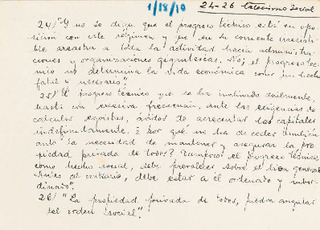 1/18/10
24-26 Catecismo Social
24/ "Y no se diga que el progreso técnico está en opo
sición con este régimen y que en su corriente irresisti
ble arrastra a toda la actividad hacia administra
ciones y organizaciones gigantescas. No; el progreso téc
nico no determina la vida económica como un hecho
fatal y necesario"
25/ "El progreso técnico que se ha inclinado dócilmente,
con excesiva frecuencia, ante las exigencias de
cálculos egoístas, ávidos de acrecentar los capitales
indefinidamente, ¿por qué no ha de ceder también
ante la necesidad de mantener y asegurar la pro
piedad privada de todos? Tampoco el progreso técnico,
como hecho social, debe prevalecer sobre el bien general
sino al contrario, debe estar a él ordenado y subor
dinado".
26/ "La propiedad privada de todos, piedra angular
del orden social".